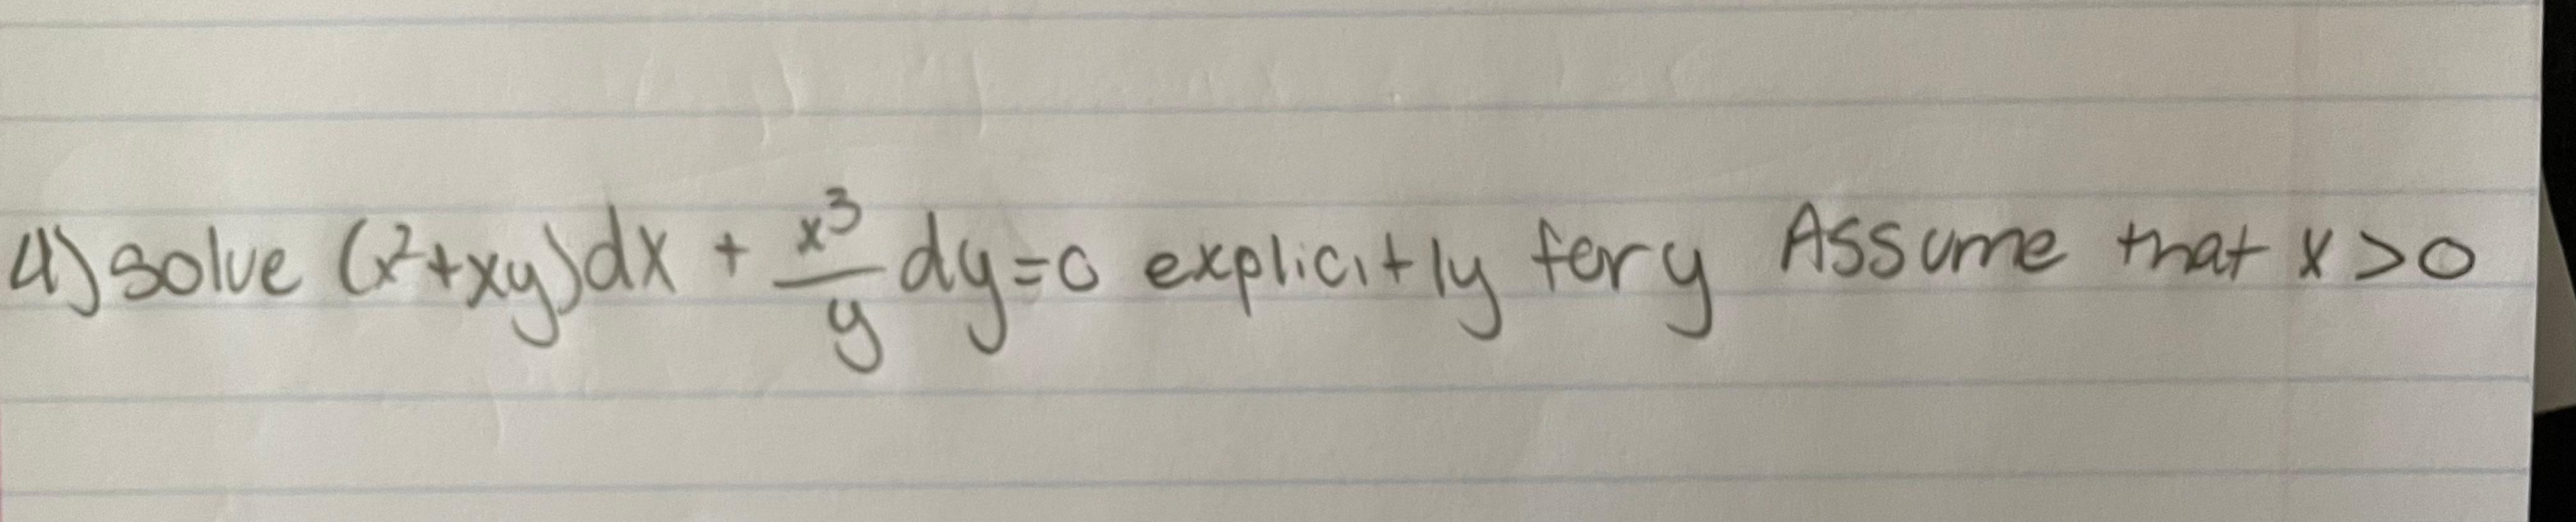 4) solve (x²+xy)dx + x³/y dy=0 explicitly for y Assume that x>0